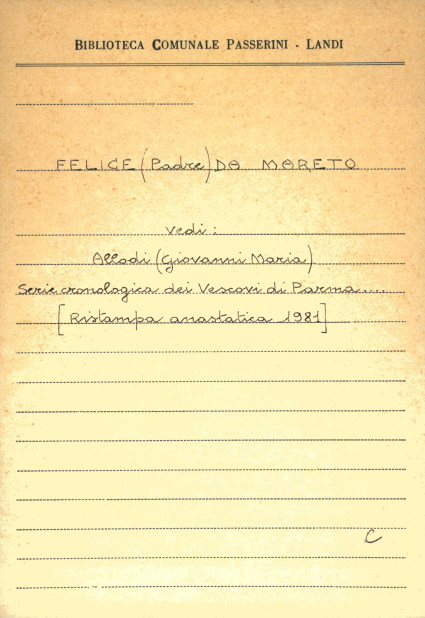 BIBLIOTECA COMUNALE PASSERINI - LANDI
FELICE (Padre) DA MARETO
vedi:
Allodi (Giovanni Maria)
Serie cronologica dei Vescovi di Parma.....
[Ristampa anastatica 1981]
C